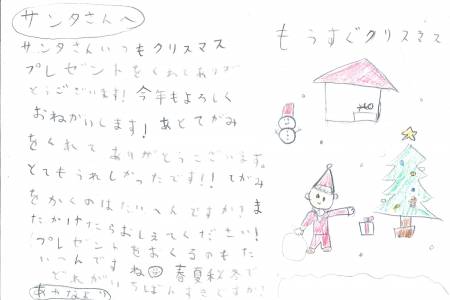 サンタさんへ
サンタさんいつもクリスマス
プレゼントをくれてありが
とうございます!今年もよろしく
おねがいします!あとてがみ
をくれて ありがとうございます。
とてもうれしかったです!!てがみ
をかくのはたいへんですか?ま
たかけたらおしえてください!
プレゼントをおくるのもた
いへんですね 春夏秋冬で
どれがいちばんすきですか?
あやなより
もうすぐクリスマス